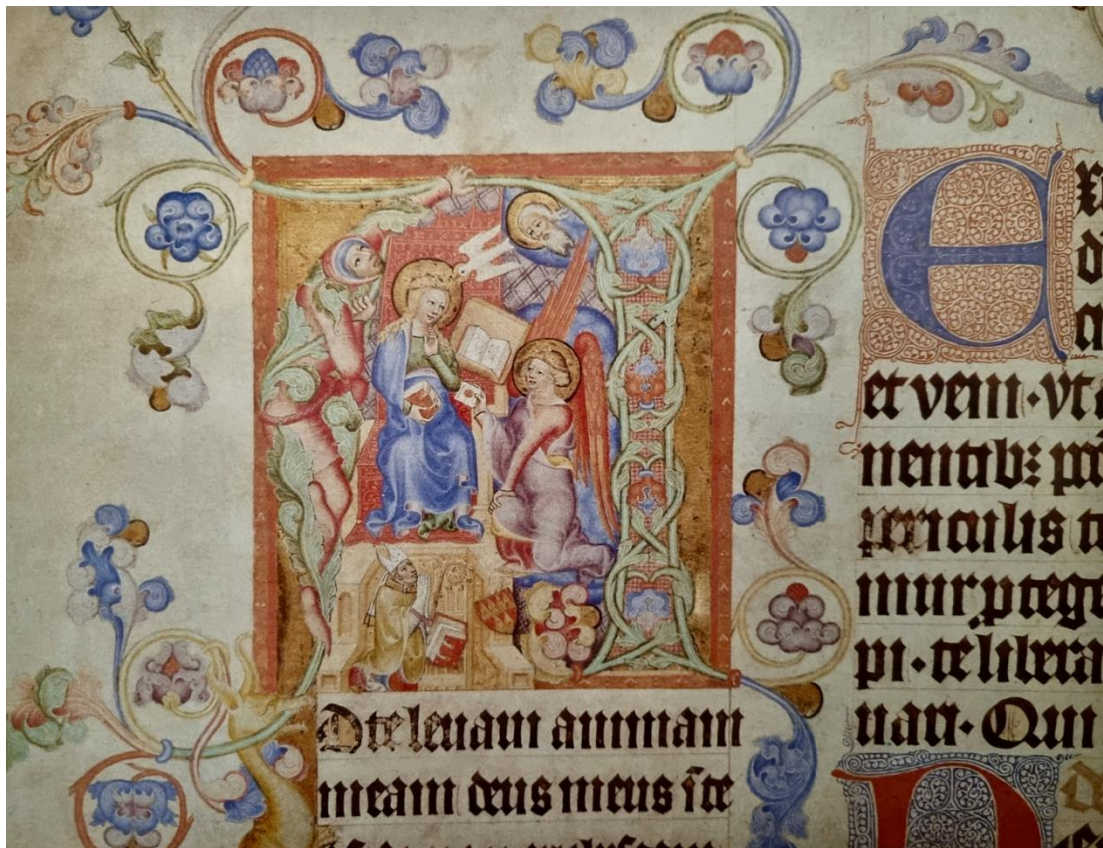 AD te leuaui animam
meam deus meus ī te
Ex
et veni · vt
nentib: pc
periculis
mur ꝑtege
pi · te libera
uari · Qui